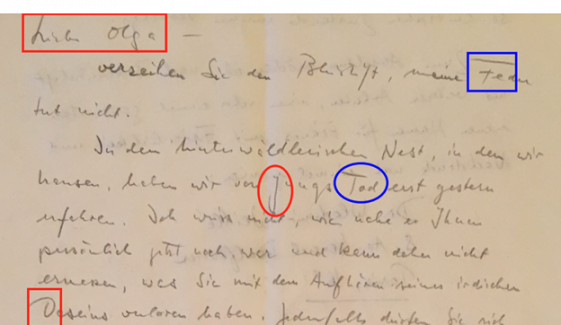 Liebe Olga —
verzeihen Sie den Bleistift, meine Feder
tut nicht.
In dem hinterwäldlerischen Nest, in dem wir
hausen, haben wir von Jungs Tod erst gestern
erfahren. Ich weiss nicht, wie nahe er Ihnen
persönlich jetzt noch war und kann daher nicht
ermessen, was Sie mit dem Aufhören seines irdischen
Daseins verloren haben. Jedenfalls dürften Sie sich